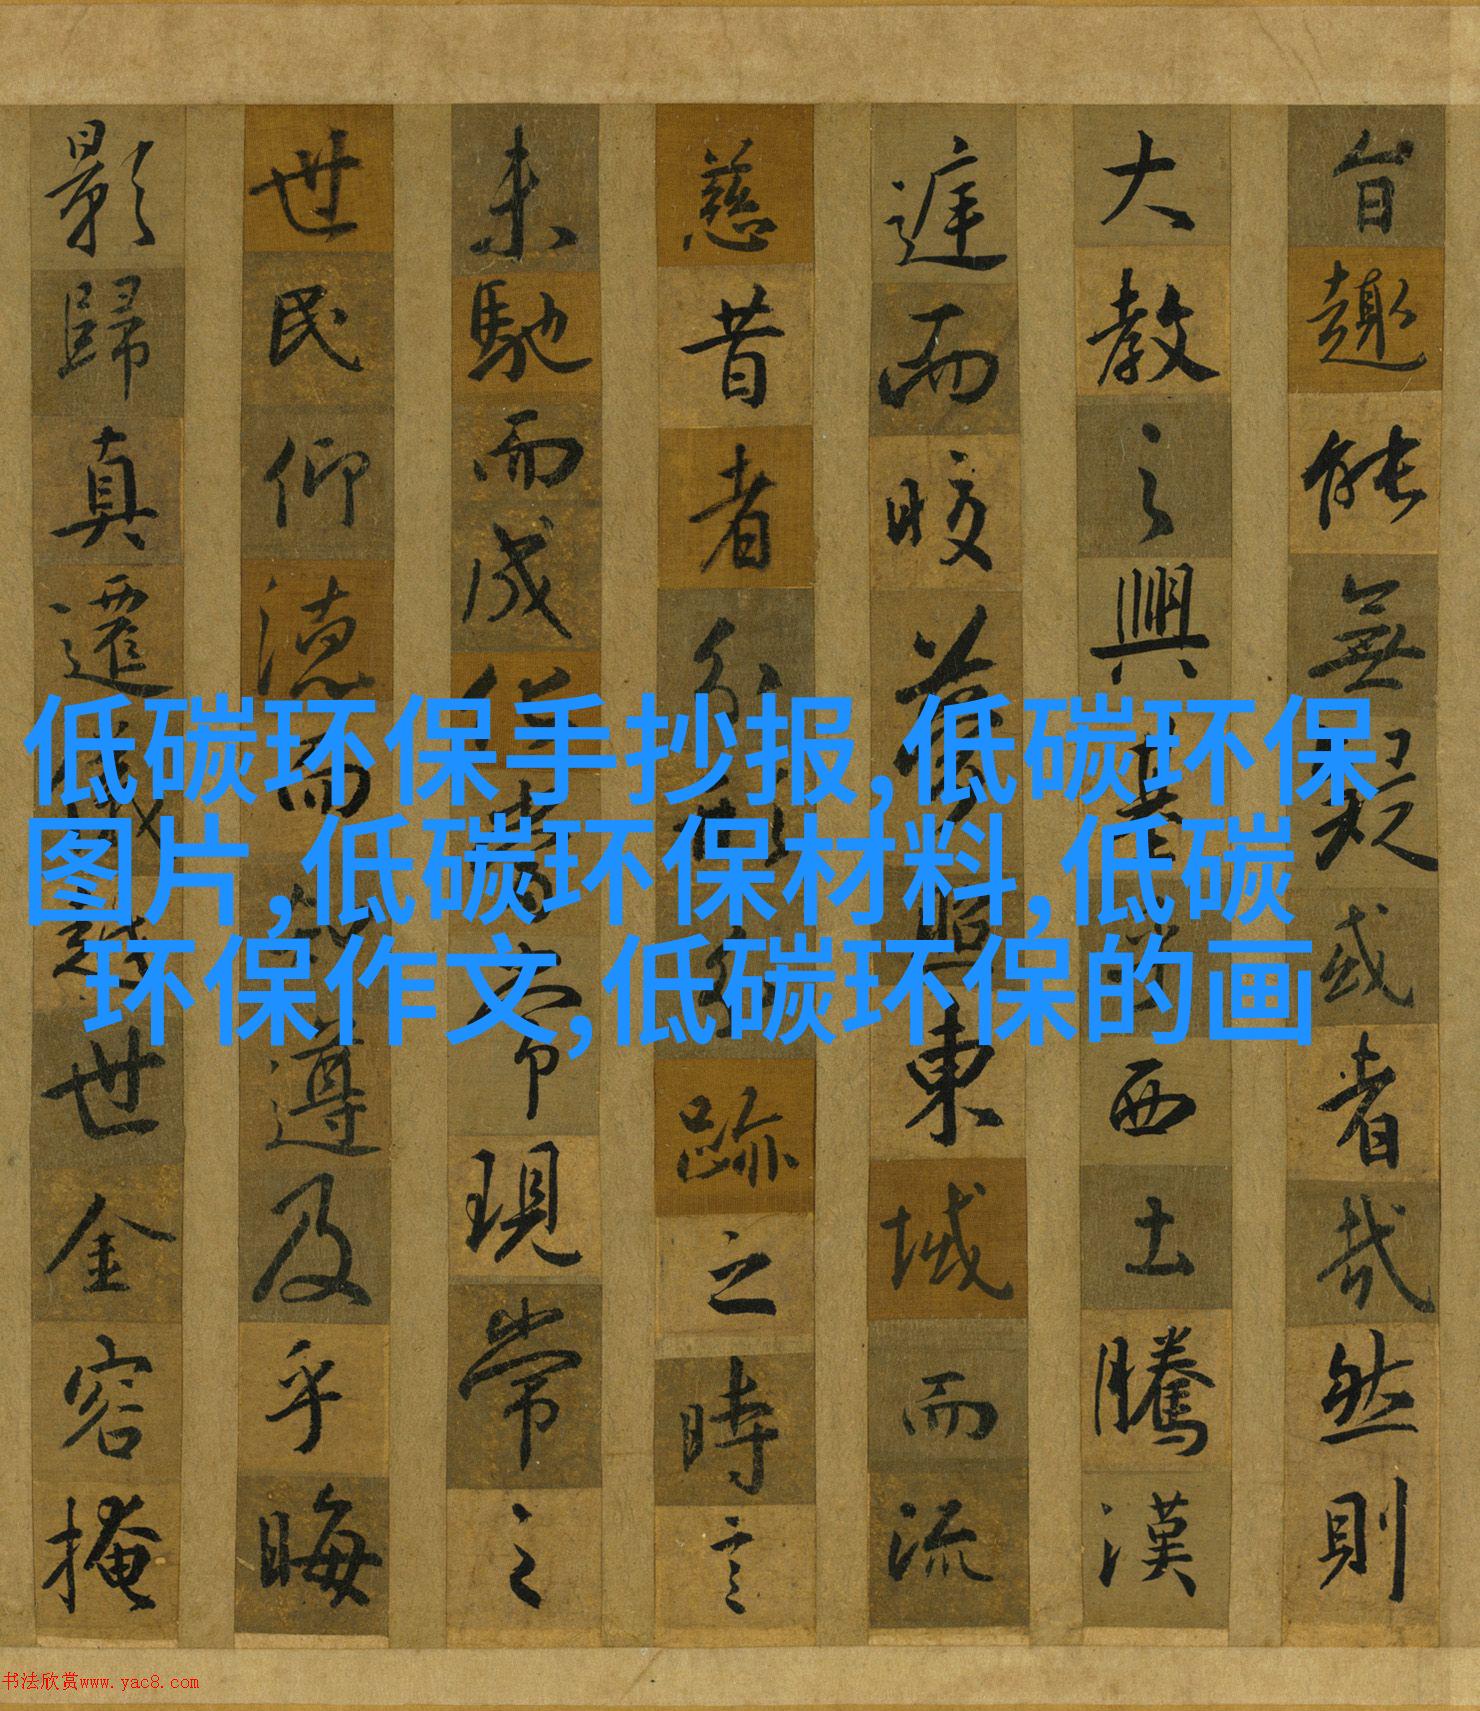 低碳环保手抄报,低碳环保
图片,低碳环保材料,低碳
环保作文,低碳环保的画
旨趣能無疑或者哉然則
大教之興基乎西土騰漢
庭而皎夢照東域而流
慈昔者分形分跡之時言
未馳而成化當常現常之
世民仰德而知遵及乎晦
影歸真遷儀越世金容掩
书法欣赏www.yac8.com